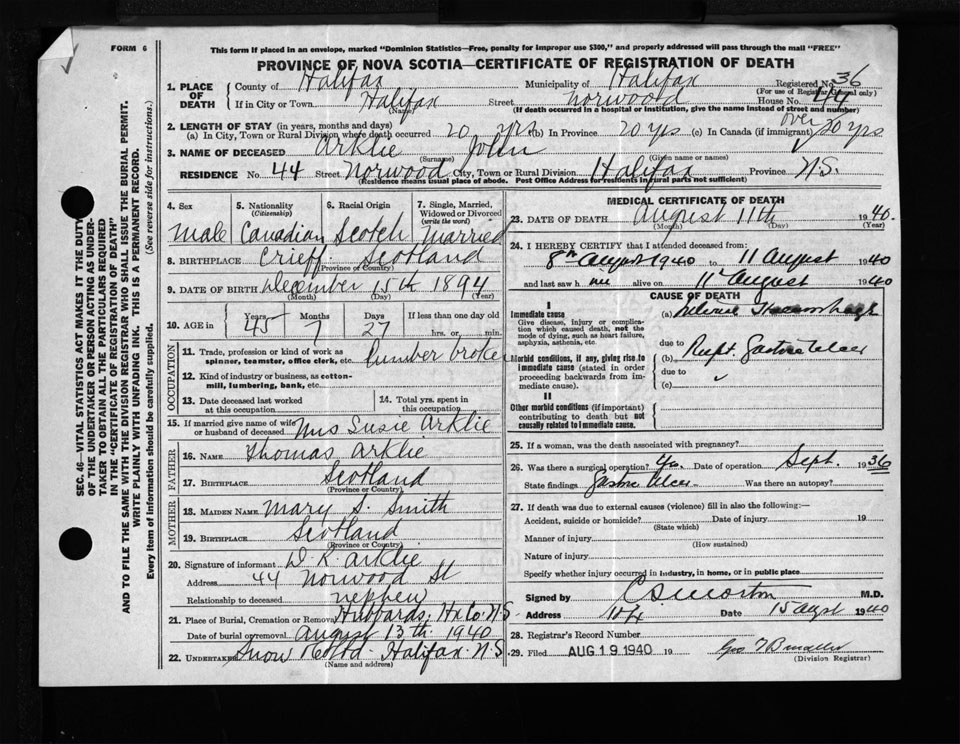 FORM 6
This form if placed in an envelope, marked "Dominion Statistics—Free, penalty for improper use $300," and properly addressed will pass through the mail "FREE"
PROVINCE OF NOVA SCOTIA—CERTIFICATE OF REGISTRATION OF DEATH
SEC. 46—VITAL STATISTICS ACT MAKES IT THE DUTY
OF THE UNDERTAKER OR PERSON ACTING AS UNDER-
TAKER TO OBTAIN ALL THE PARTICULARS REQUIRED
IN THE "CERTIFICATE OF REGISTRATION OF DEATH"
AND TO FILE THE SAME WITH THE DIVISION REGISTRAR WHO SHALL ISSUE THE BURIAL PERMIT.
WRITE PLAINLY WITH UNFADING INK. THIS IS A PERMANENT RECORD.
Every item of information should be carefully supplied. (See reverse side for instructions.)
1. PLACE OF DEATH
County of Halifax Municipality of Halifax Registered No. 36
(For use of Registrar General only)
If in City or Town Halifax Street Norwood House No. 44
(Name) (If death occurred in a hospital or Institution, give the name instead of street and number)
2. LENGTH OF STAY (in years, months and days)
(a) In City, Town or Rural Division where death occurred 20 yrs (b) In Province 20 yrs (c) In Canada (if immigrant) over 20 yrs
3. NAME OF DECEASED Arklie John
(Surname) (Given name or names)
RESIDENCE No. 44 Street Norwood City, Town or Rural Division Halifax Province N.S.
(Residence means usual place of abode. Post Office Address for residents in rural parts not sufficient)
4. Sex
Male
5. Nationality (Citizenship)
Canadian
6. Racial Origin
Scotch
7. Single, Married, Widowed or Divorced (write the word)
Married
8. BIRTHPLACE Crieff Scotland
(Province or Country)
9. DATE OF BIRTH December 15th 1894
(Month) (Day) (Year)
10. AGE in Years Months Days If less than one day old
45 7 27 hrs. or min.
OCCUPATION
11. Trade, profession or kind of work as spinner, teamster, office clerk, etc. Lumber broker
12. Kind of industry or business, as cotton-mill, lumbering, bank, etc.
13. Date deceased last worked at this occupation
14. Total yrs. spent in this occupation
15. If married give name of wife or husband of deceased Mrs Susie Arklie
FATHER
16. NAME Thomas Arklie
17. BIRTHPLACE Scotland
(Province or Country)
MOTHER
18. MAIDEN NAME Mary S. Smith
19. BIRTHPLACE Scotland
(Province or Country)
20. Signature of informant D. K. Arklie
Address 44 Norwood St
Relationship to deceased nephew
21. Place of Burial, Cremation or Removal Hubbards. Hx Co. N.S
Date of burial or removal August 13th 1940
22. Undertaker Snow & Co Ltd. Halifax. N.S.
(Name and address)
MEDICAL CERTIFICATE OF DEATH
23. DATE OF DEATH August 11th 1940.
(Month) (Day) (Year)
24. I HEREBY CERTIFY that I attended deceased from:
8th August 1940 to 11 August 1940
and last saw him alive on 11 August 1940
CAUSE OF DEATH
I
Immediate cause
Give disease, injury or complication which caused death, not the mode of dying, such as heart failure, asphyxia, asthenia, etc.
(a)
due to
Morbid conditions, if any, giving rise to immediate cause (stated in order proceeding backwards from immediate cause).
(b) Rupt. Gastric Ulcer
due to
(c)
II
Other morbid conditions (if important) contributing to death but not causally related to immediate cause.
25. If a woman, was the death associated with pregnancy?
26. Was there a surgical operation? Yes. Date of operation Sept. 1936
State findings Gastric Ulcer Was there an autopsy?
27. If death was due to external causes (violence) fill in also the following:—
Accident, suicide or homicide? Date of injury 19
(State which)
Manner of injury
(How sustained)
Nature of injury
Specify whether injury occurred in industry, in home, or in public place
Signed by M.D.
Address Hfx Date 15 Augst 1940
28. Registrar's Record Number
29. Filed AUG 19 1940 19
(Division Registrar)